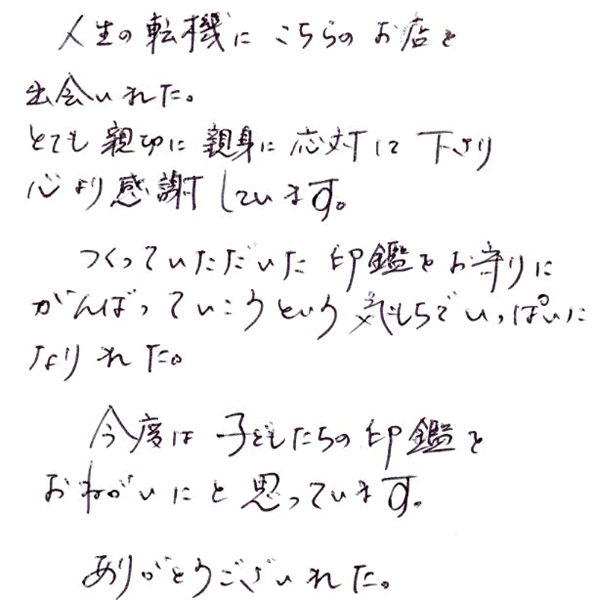 人生の転機に こちらの お店と
出会いました。
とても 親切に 親身に 応対して 下さり
心より感謝しています。
つくっていただいた 印鑑をお守りに
がんばっていこうという 気もちでいっぱいに
なりました。
今度は 子どもたちの印鑑を
おねがいにと思っています。
ありがとうございました。